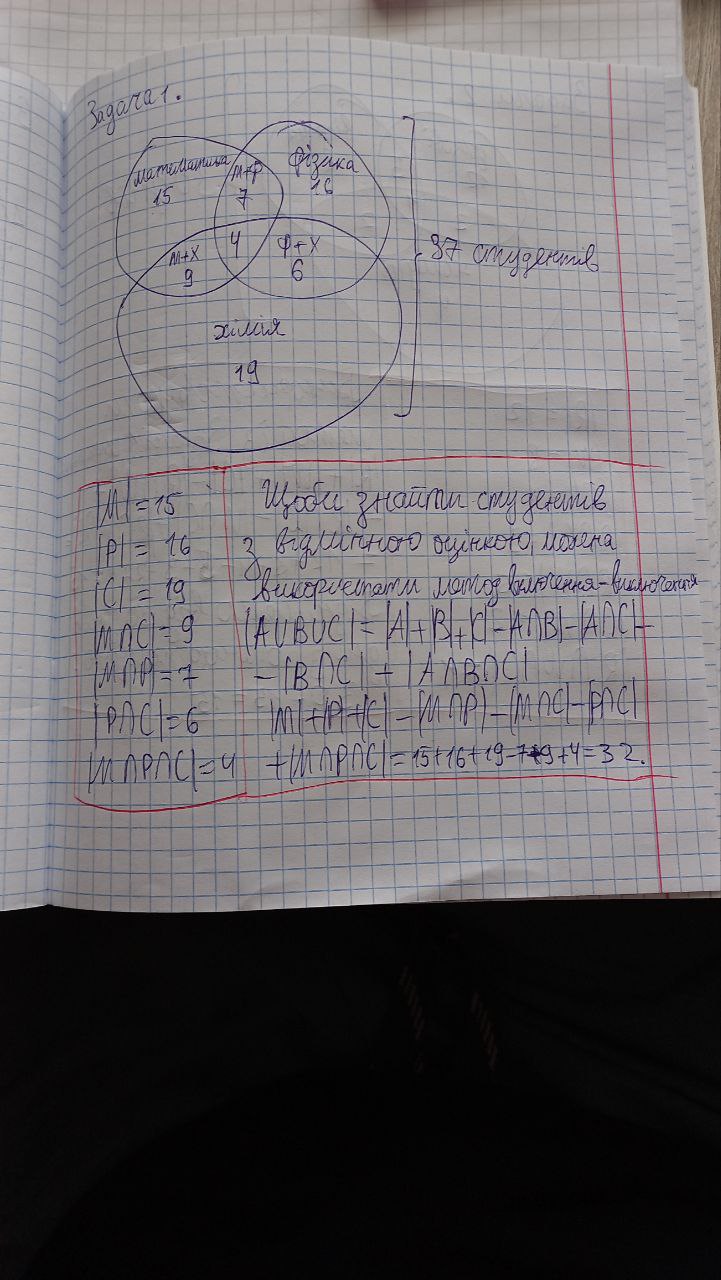 Задача 1.
математика
15
м+ф
7
фізика
16
м+х
9
4
ф+х
6
хімія
19
37 студентів
|M| = 15
|P| = 16
|C| = 19
|M∩C| = 9
|M∩P| = 7
|P∩C| = 6
|M∩P∩C| = 4
Щоби знайти студентів
з відмінною оцінкою, можна
використати метод включення-виключення
|A∪B∪C| = |A|+|B|+|C|-|A∩B|-|A∩C|-
-|B∩C| + |A∩B∩C|
|M|+|P|+|C|-|M∩P|-|M∩C|-|P∩C|
+|M∩P∩C| = 15+16+19-7-9+4=32.